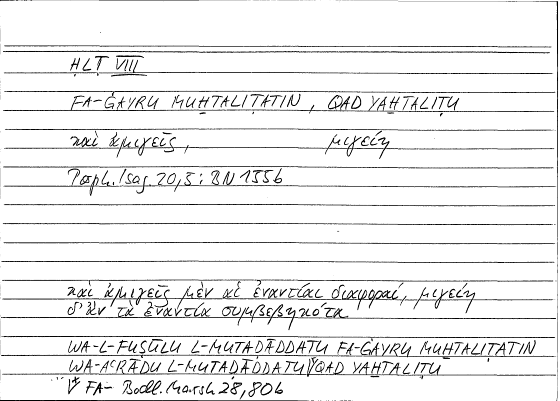 ḪLṬ VIII
FA-ĠAYRU MUḪTALIṬATIN, QAD YAḪTALIṬU
καὶ ἀμιγεῖς, μιγείη
Porph. Isag. 20,5: BN 155b
καὶ ἀμιγεῖς μὲν αἱ ἐναντίαι διαφοραί, μιγείη
δ' ἂν τὰ ἐναντία συμβεβηκότα
WA-L-FUṢŪLU L-MUTAḌĀDDATU FA-ĠAYRU MUḪTALIṬATIN
WA-AʿRĀḌU L-MUTAḌĀDDATU QAD YAḪTALIṬU
FA- Bodl. Marsh 28,80b